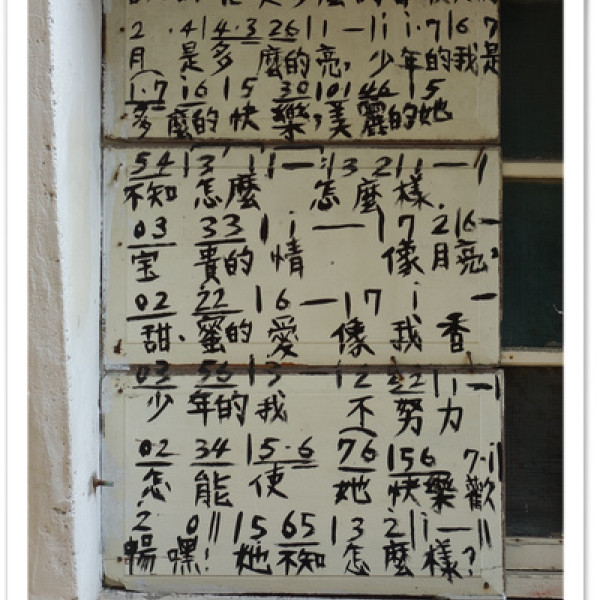 2 · 4 | 4·3 26 | 1 — | i i·7 | 6 7
月 是多 麼的亮, 少年的我是
1·7 i6 | 5 30 | 101 46 | 5
多麼的快樂,美麗的她
54 | 3 1 | 1 — :| 3 2 | 1 — ||
不知怎麼 怎麼樣.
03 33 | i — — | 7 2 | 6 —
宝貴的情 像月亮,
02 22 | 6 — | 7 i —
甜.蜜的愛 像我香
03 56 | 3 | 2 22 | 1 — |
少年的我 不努力
02 34 | 5·6 76 | 56 7·i
怎能使 她快樂歡
2 0 || 5 65 | 3 2 | i — ||
暢嘿! 她不知怎麼樣?